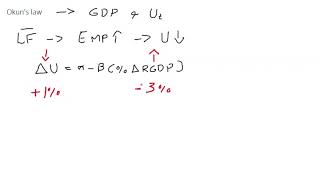 Okun's law → GDP & Ut
L̅F̅ → EMP↑ → U↓
ΔU = α - B(% ΔRGDP)
+1% - 3%